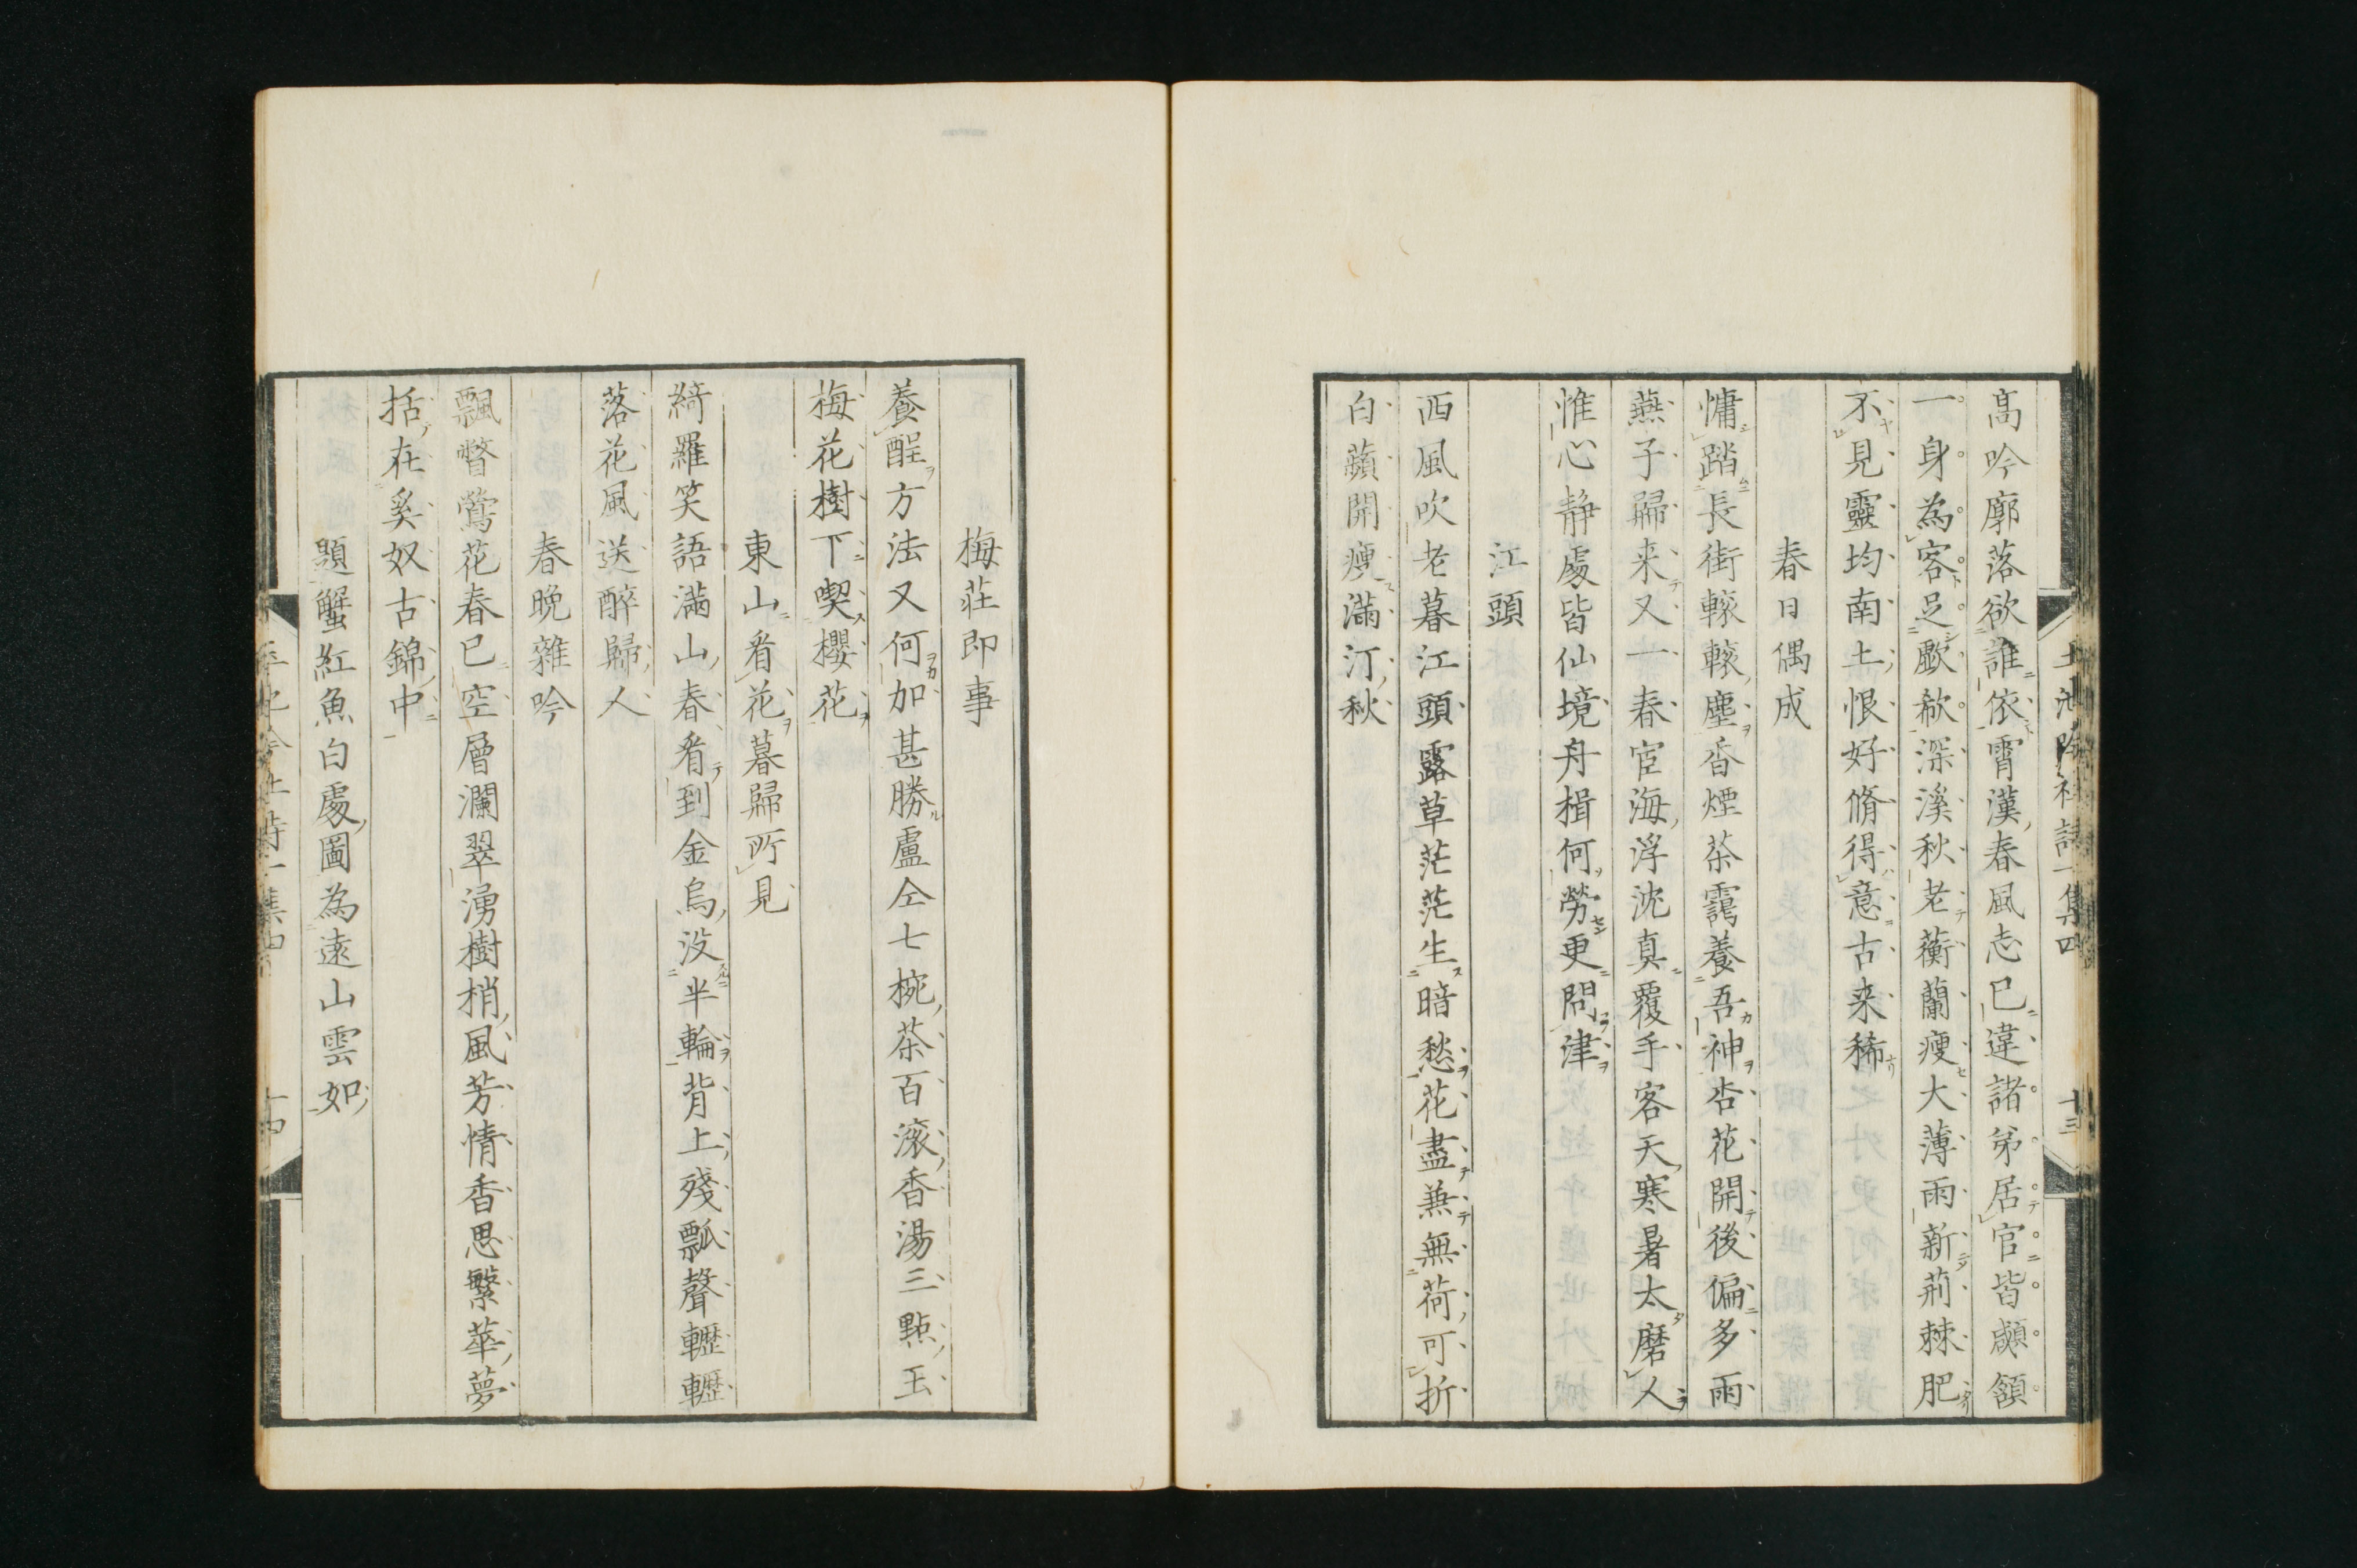 高吟廓落欲誰依霄漢春風志已違諸弟居官皆顑頷
一身為客足歔欷深溪秋老蘅蘭瘦大薄雨新荊棘肥
不見靈均南土恨好脩得意古来稀
春日偶成
慵踏長街轇轕塵香煙茶靄養吾神杏花開後偏多雨
燕子歸来又一春宦海浮沈真覆手客天寒暑太磨人
惟心静處皆仙境舟楫何勞更問津
江頭
西風吹老暮江頭露草茫茫生暗愁花盡蒹無荷可折
白蘋開瘦滿汀秋
梅莊即事
養酲方法又何加甚勝盧仝七椀茶百滚香湯三點玉
梅花樹下喫櫻花
東山看花暮歸所見
綺羅笑語滿山春看到金烏没半輪背上殘瓢聲轣轣
落花風送醉歸人
春晚雜吟
飄瞥鶯花春已空層瀾翠湧樹梢風芳情香思繁華夢
括在奚奴古錦中
題蟹紅魚白處圖為遠山雲如